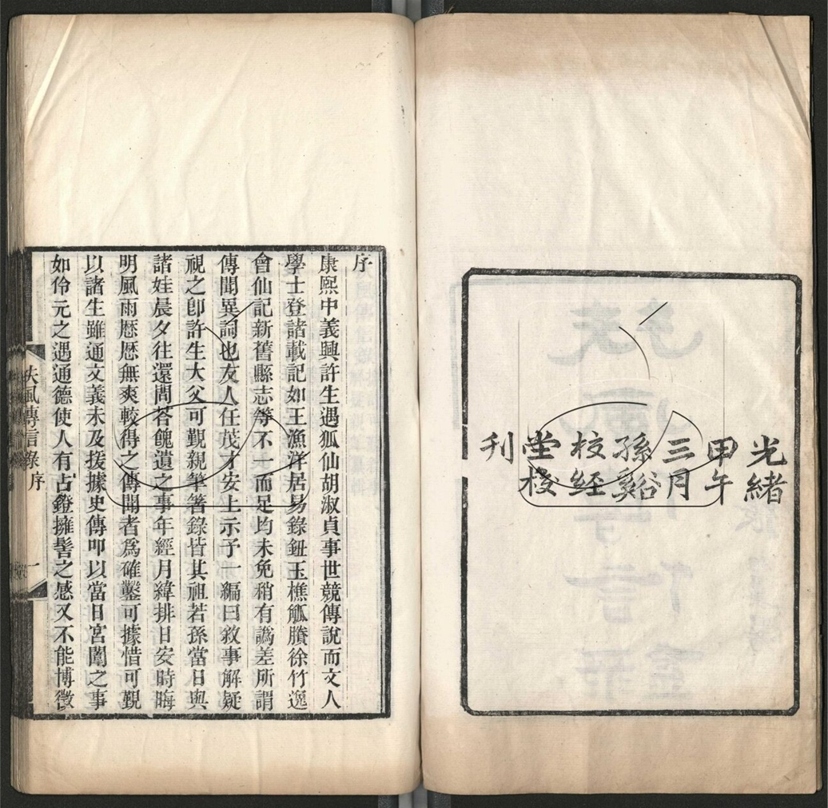 光緒
甲午
三月
孫谿
校經
堂
刊
序
康熙中義興許生遇狐仙胡淑貞事世競傳說而文人
學士登諸載記如王漁洋居易錄鈕玉樵觚賸徐竹逸
會仙記新舊縣志等不一而足均未免稍有譌差所謂
傳聞異詞也友人任茂才安上示予一編曰敘事解疑
視之卽許生大父可覲親筆箸錄皆其祖若孫當日與
諸娃晨夕往還問荅餽遺之事年經月緯排日安時晦
明風雨厯厯無爽較得之傳聞者爲確鑿可據惜可覲
以諸生雖通文義未及援據史傳叩以當日宮闈之事
如伶元之遇通德使人有占鐙擁髻之感又不能博徵
夫風傳言錄序
一